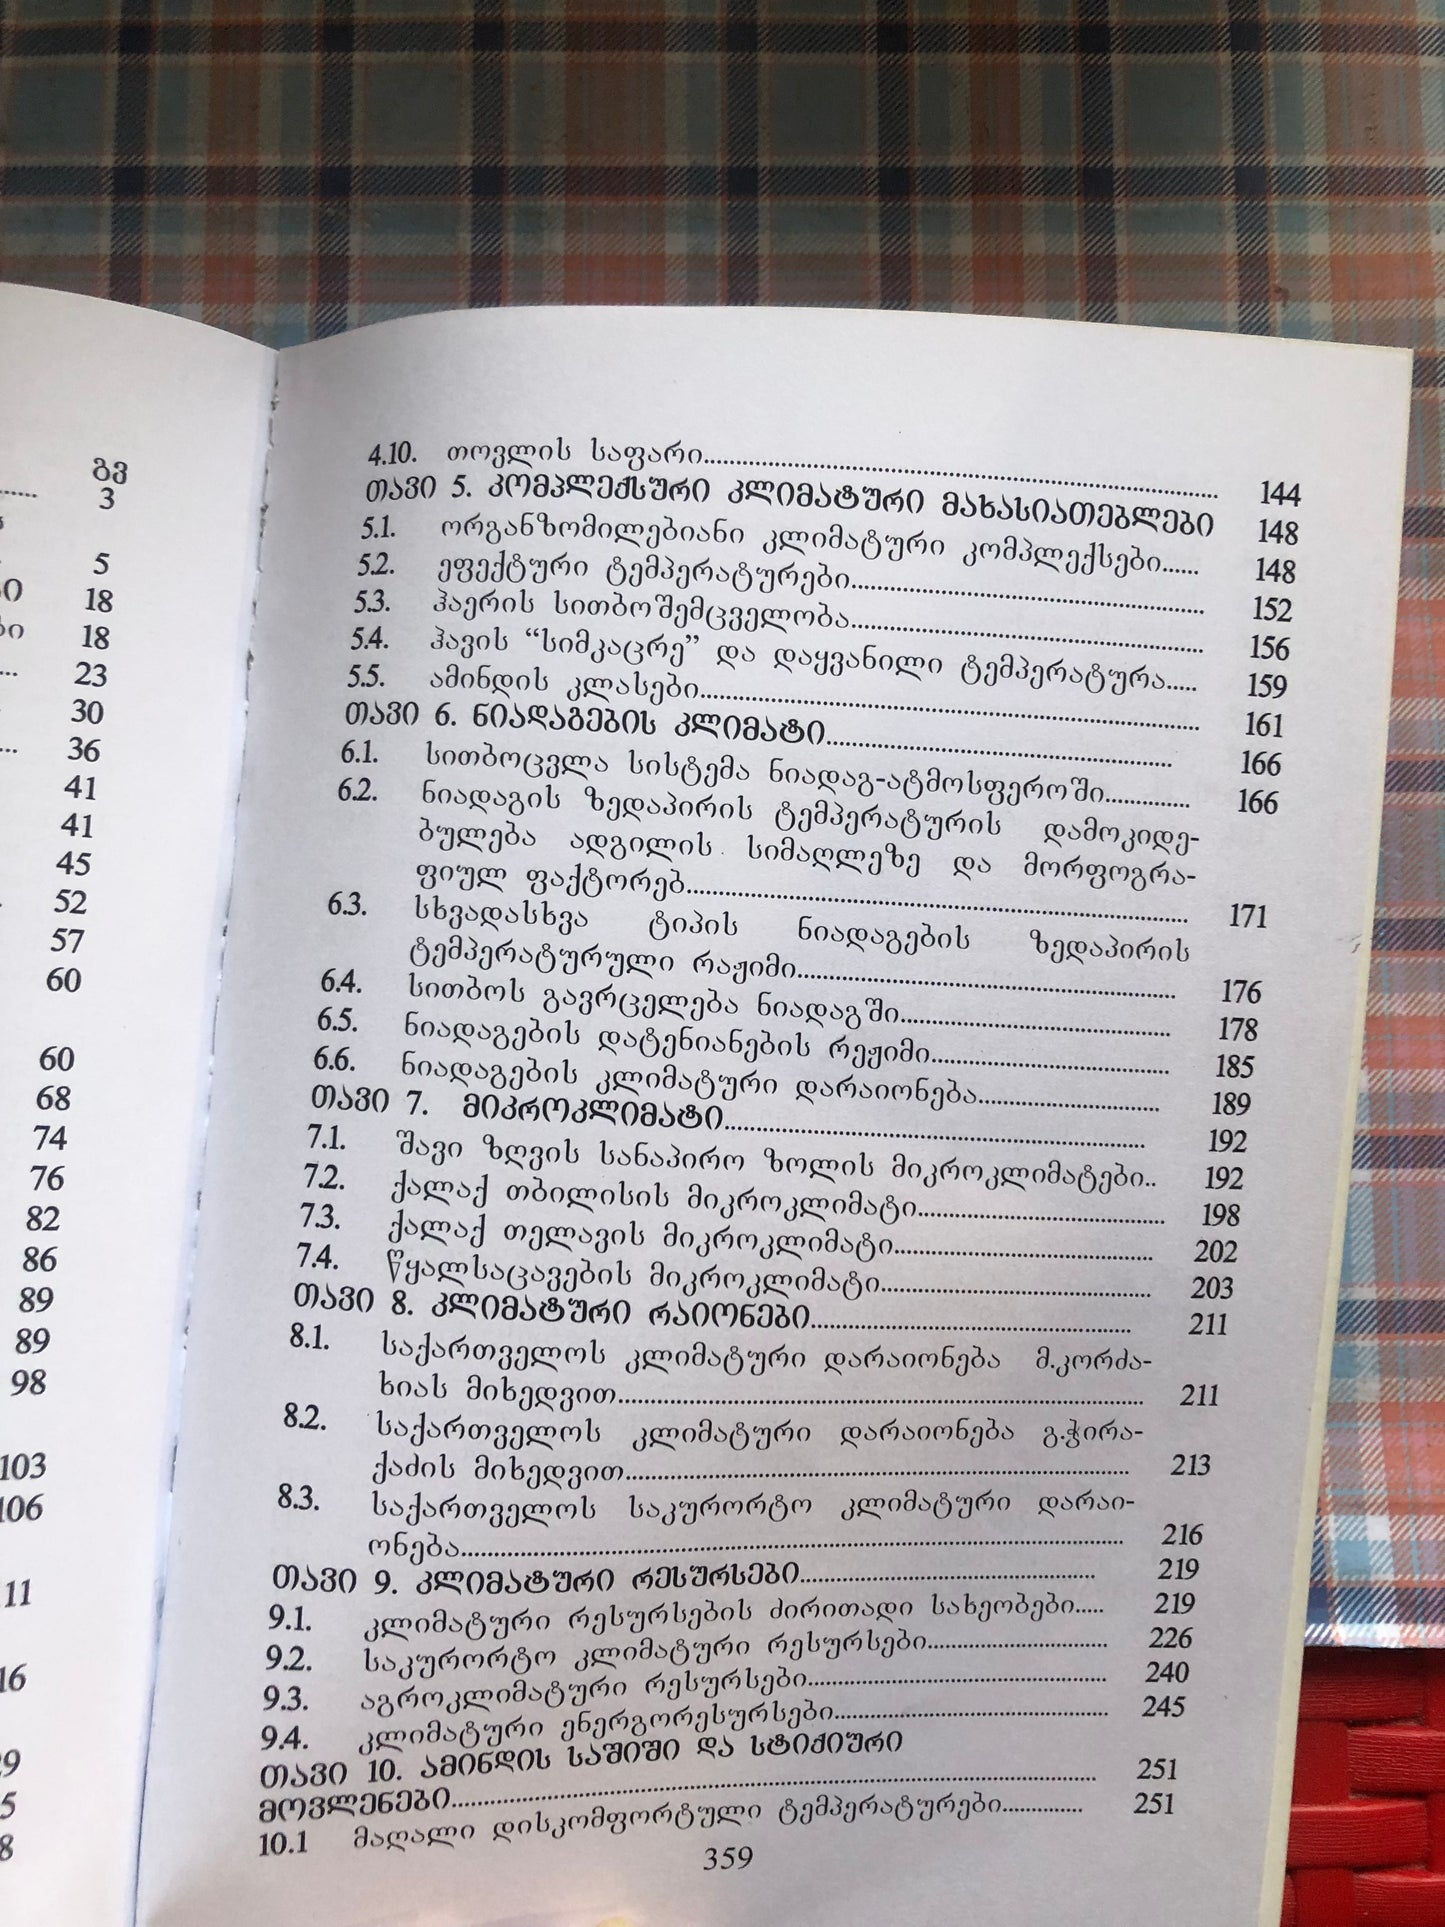 გვ
3
5
18
18
23
30
36
41
41
45
52
57
60
60
68
74
76
82
86
89
89
98
103
106
4.10. თოვლის საფარი........ 144
თავი 5. კომპლექსური კლიმატური მახასიათებლები 148
5.1. ორგანზომილებიანი კლიმატური კომპლექსები...... 148
5.2. ეფექტური ტემპერატურები........ 152
5.3. ჰაერის სითბოშემცველობა........ 156
5.4. ჰავის “სიმკაცრე” და დაყვანილი ტემპერატურა..... 159
5.5. ამინდის კლასები........ 161
თავი 6. ნიადაგების კლიმატი........ 166
6.1. სითბოცვლა სისტემა ნიადაგ-ატმოსფეროში........ 166
6.2. ნიადაგის ზედაპირის ტემპერატურის დამოკიდე-
ბულება ადგილის სიმაღლეზე და მორფოგრა-
ფიულ ფაქტორებ........ 171
6.3. სხვადასხვა ტიპის ნიადაგების ზედაპირის
ტემპერატურული რაჟიმი........ 176
6.4. სითბოს გავრცელება ნიადაგში........ 178
6.5. ნიადაგების დატენიანების რეჟიმი........ 185
6.6. ნიადაგების კლიმატური დარაიონება........ 189
თავი 7. მიკროკლიმატი........ 192
7.1. შავი ზღვის სანაპირო ზოლის მიკროკლიმატები.. 192
7.2. ქალაქ თბილისის მიკროკლიმატი........ 198
7.3. ქალაქ თელავის მიკროკლიმატი........ 202
7.4. წყალსაცავების მიკროკლიმატი........ 203
თავი 8. კლიმატური რაიონები........ 211
8.1. საქართველოს კლიმატური დარაიონება მ.კორძა-
ხიას მიხედვით........ 211
8.2. საქართველოს კლიმატური დარაიონება გ.ჭირა-
ქაძის მიხედვით........ 213
8.3. საქართველოს საკურორტო კლიმატური დარაი-
ონება........ 216
თავი 9. კლიმატური რესურსები........ 219
9.1. კლიმატური რესურსების ძირითადი სახეობები..... 219
9.2. საკურორტო კლიმატური რესურსები........ 226
9.3. აგროკლიმატური რესურსები........ 240
9.4. კლიმატური ენერგორესურსები........ 245
თავი 10. ამინდის საშიში და სტიქიური
მოვლენები........ 251
10.1 მაღალი დისკომფორტული ტემპერატურები........ 251
359